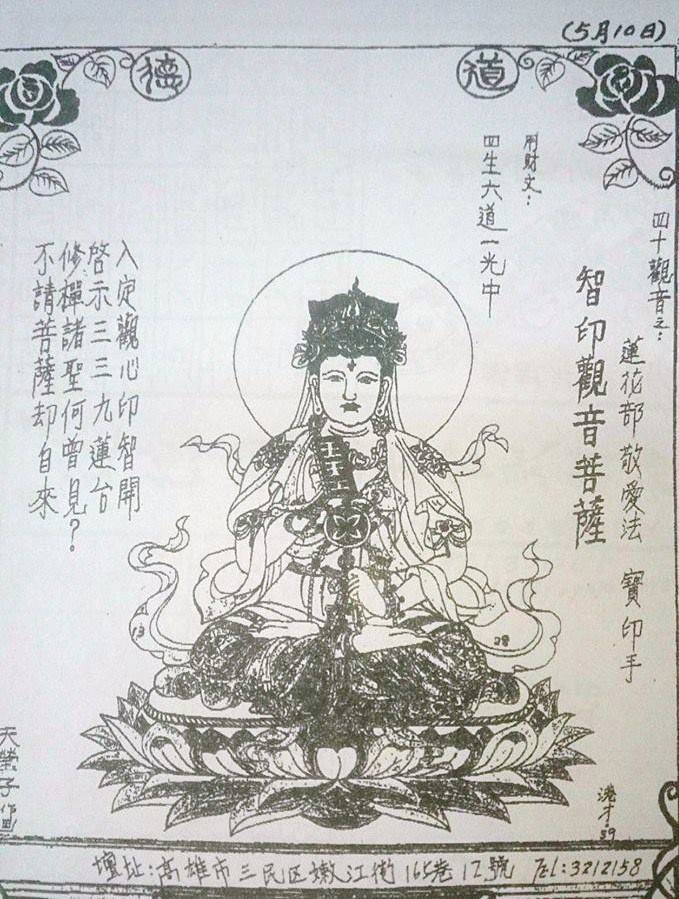 (5月10日)
道
德
四十觀音之:
蓮花部 敬愛法 寶印手
智印觀音菩薩
四生六道一光中
入定觀心印智開
啓示三三九蓮台
修禪諸聖何曾見?
不請菩薩却自來
天瑩子作画
壇址:高雄市三民区嫩江街165巷12號 TEL:3212158